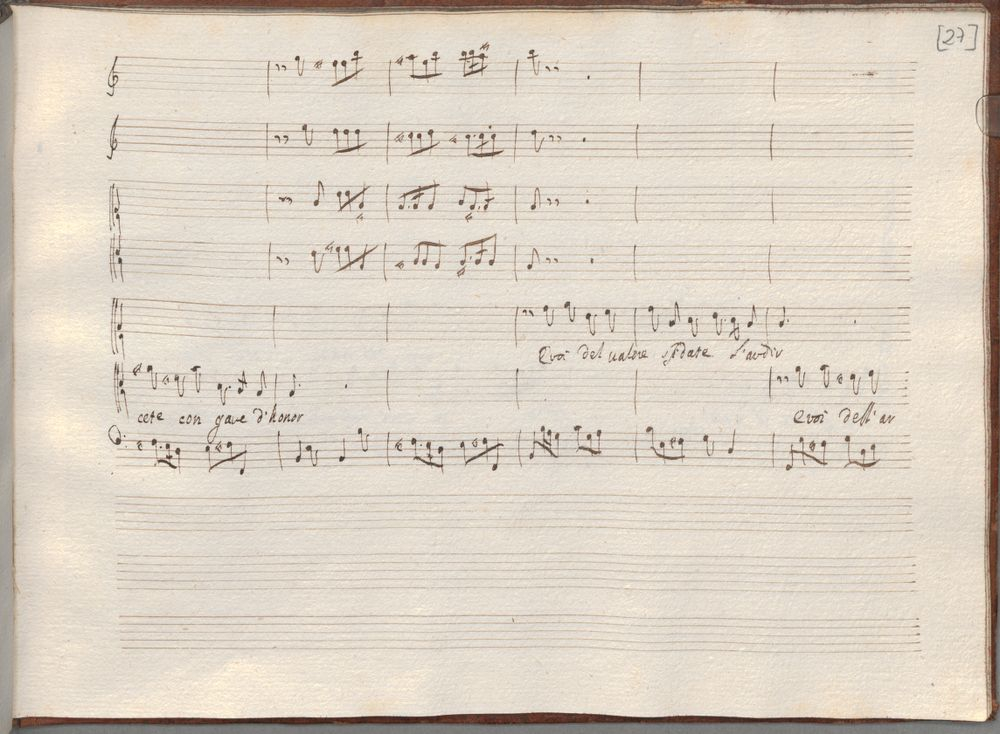 [27]
E voi del valore sfidate l'ardir
cete con gare d'honor
E voi dell' ar